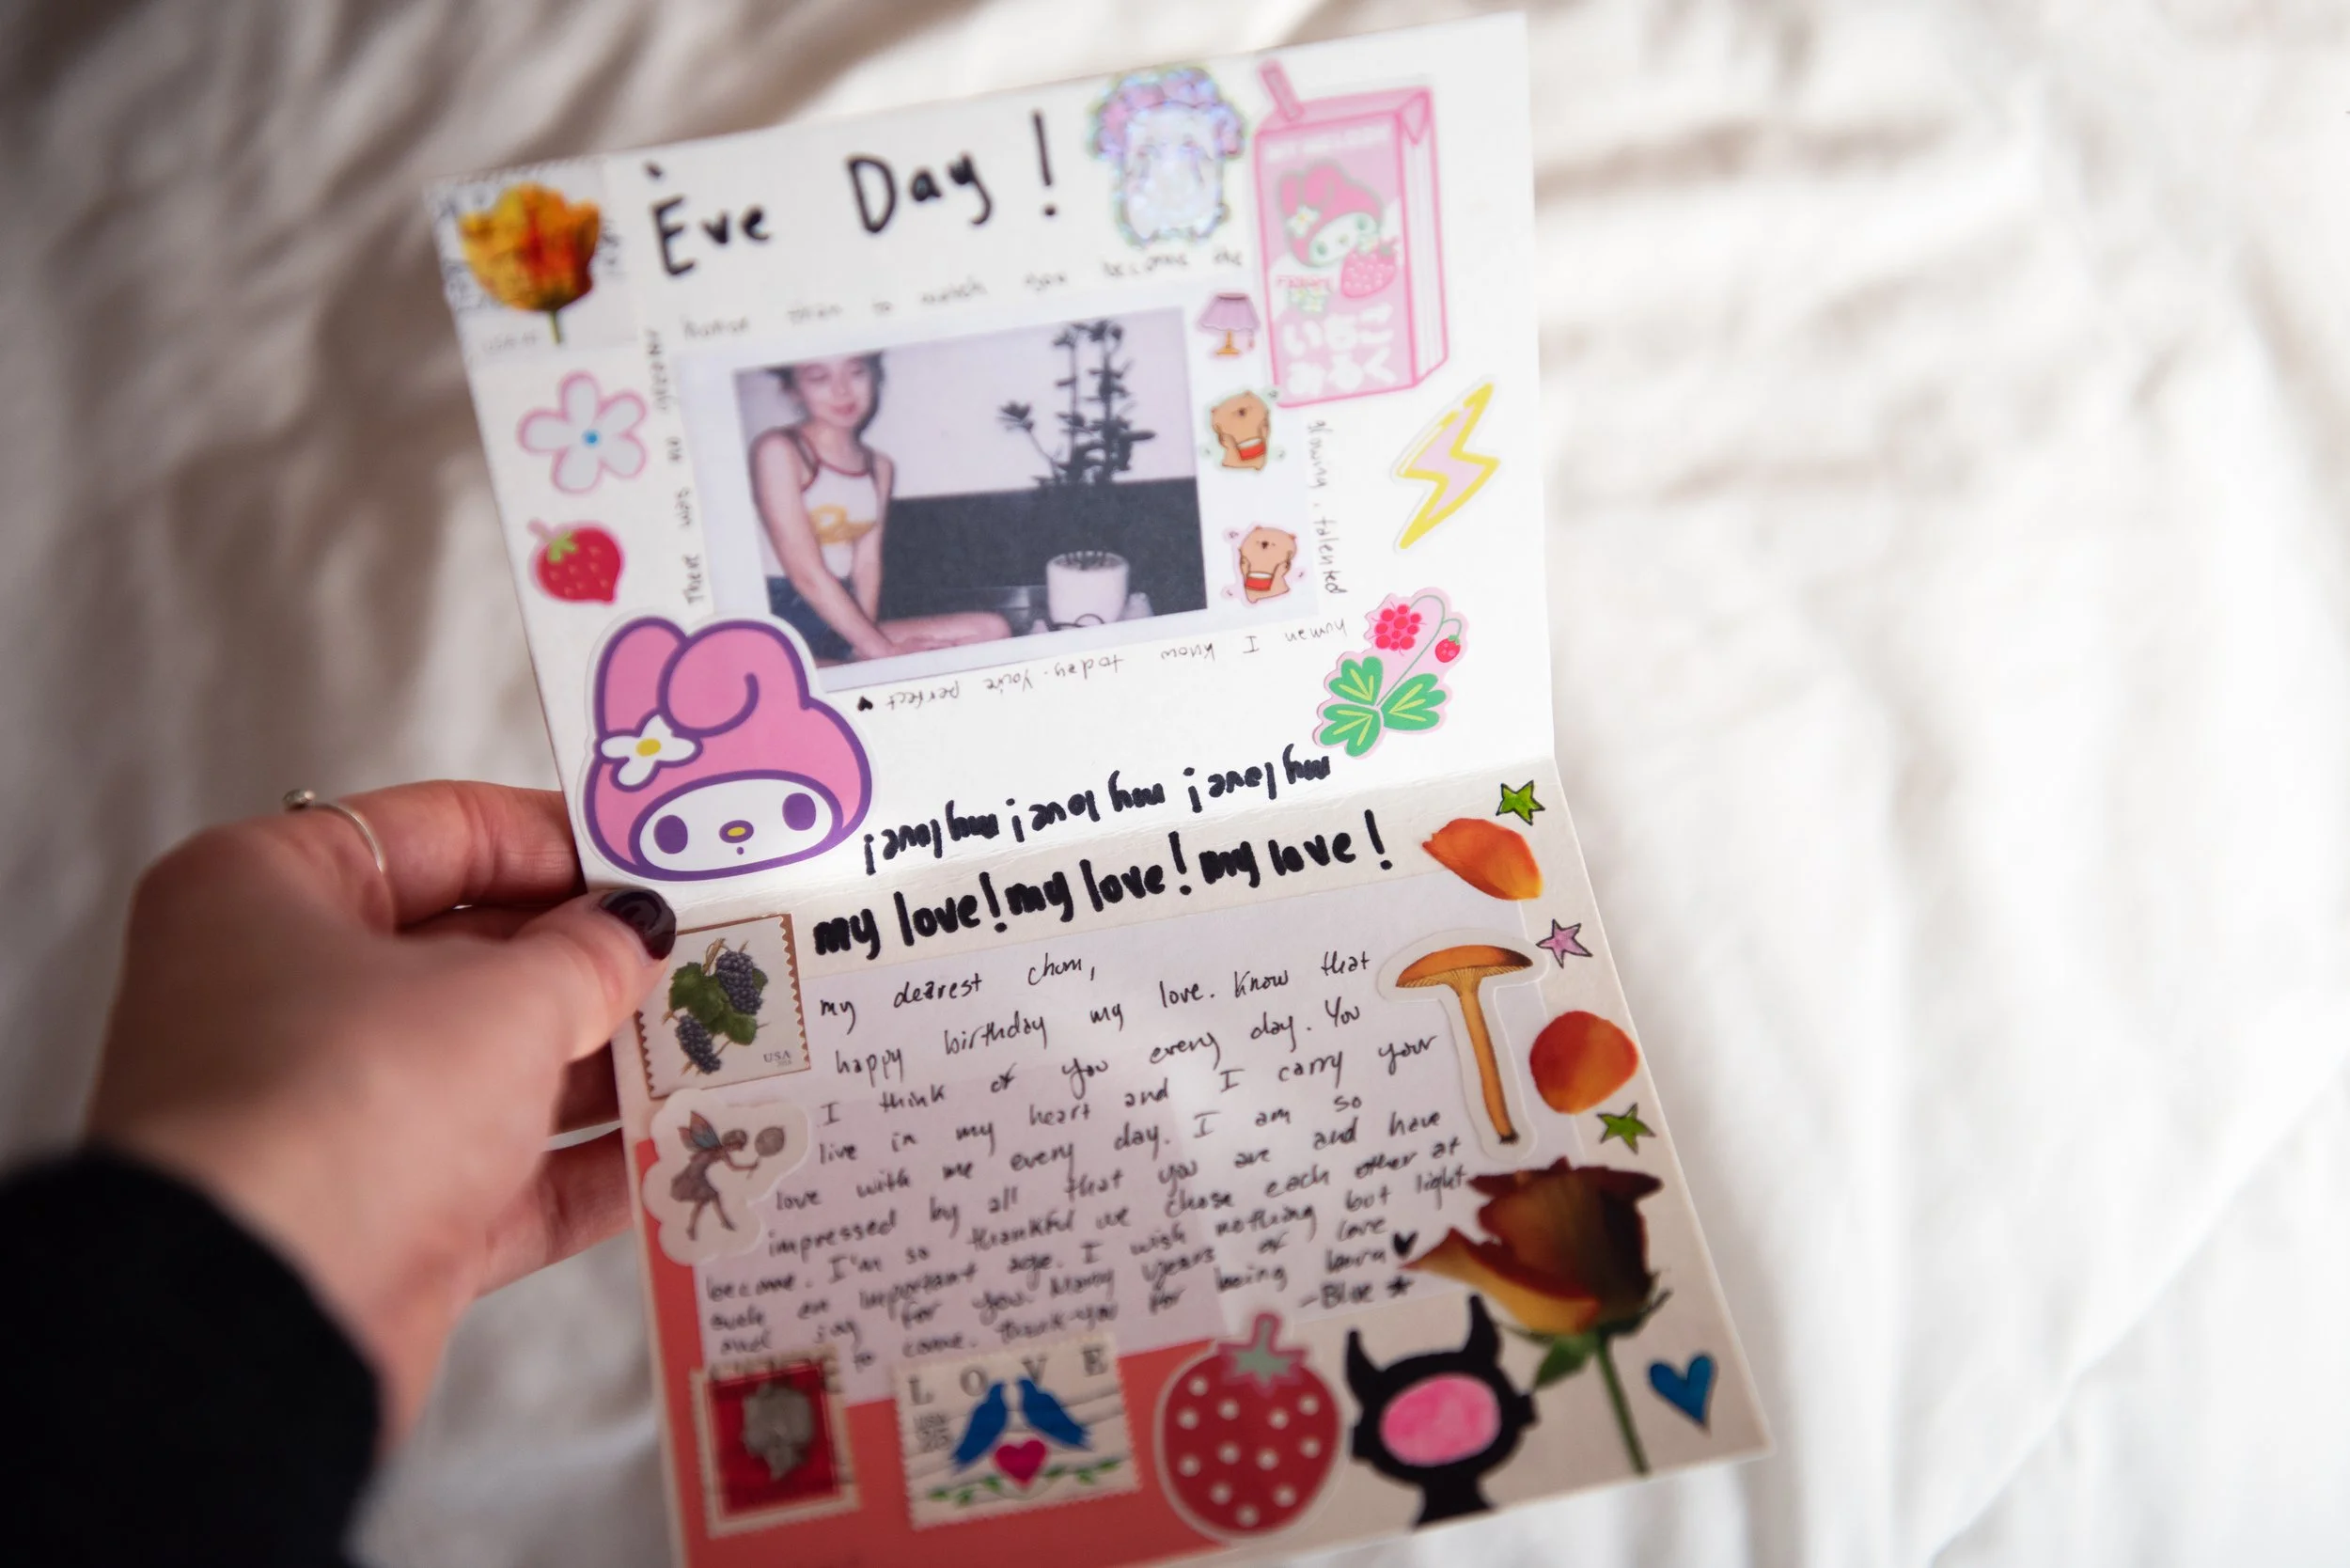 Ève Day !
There was no
honor than to watch you become the
glowing, talented
human I know today. You're perfect ♥
いちご
みるく
my love! my love! my love!
my love! my love! my love!
my dearest chom,
happy birthday my love. Know that
I think of you every day. You
live in my heart and I carry your
love with me every day. I am so
impressed by all that you are and have
become. I'm so thankful we chose each other at
such an important age. I wish nothing but light
and joy for you. Many years of love
to come. thank-you for being born ♥
-Blue
USA
LOVE